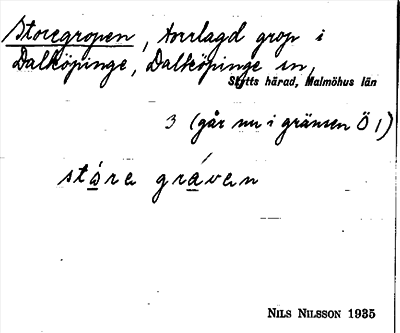 Storegropen, torrlagd grop i
Dalköpinge, Dalköpinge sn,
Skytts härad, Malmöhus län
3 (går nu i gränsen Ö 1)
stóre gráven
NILS NILSSON 1935